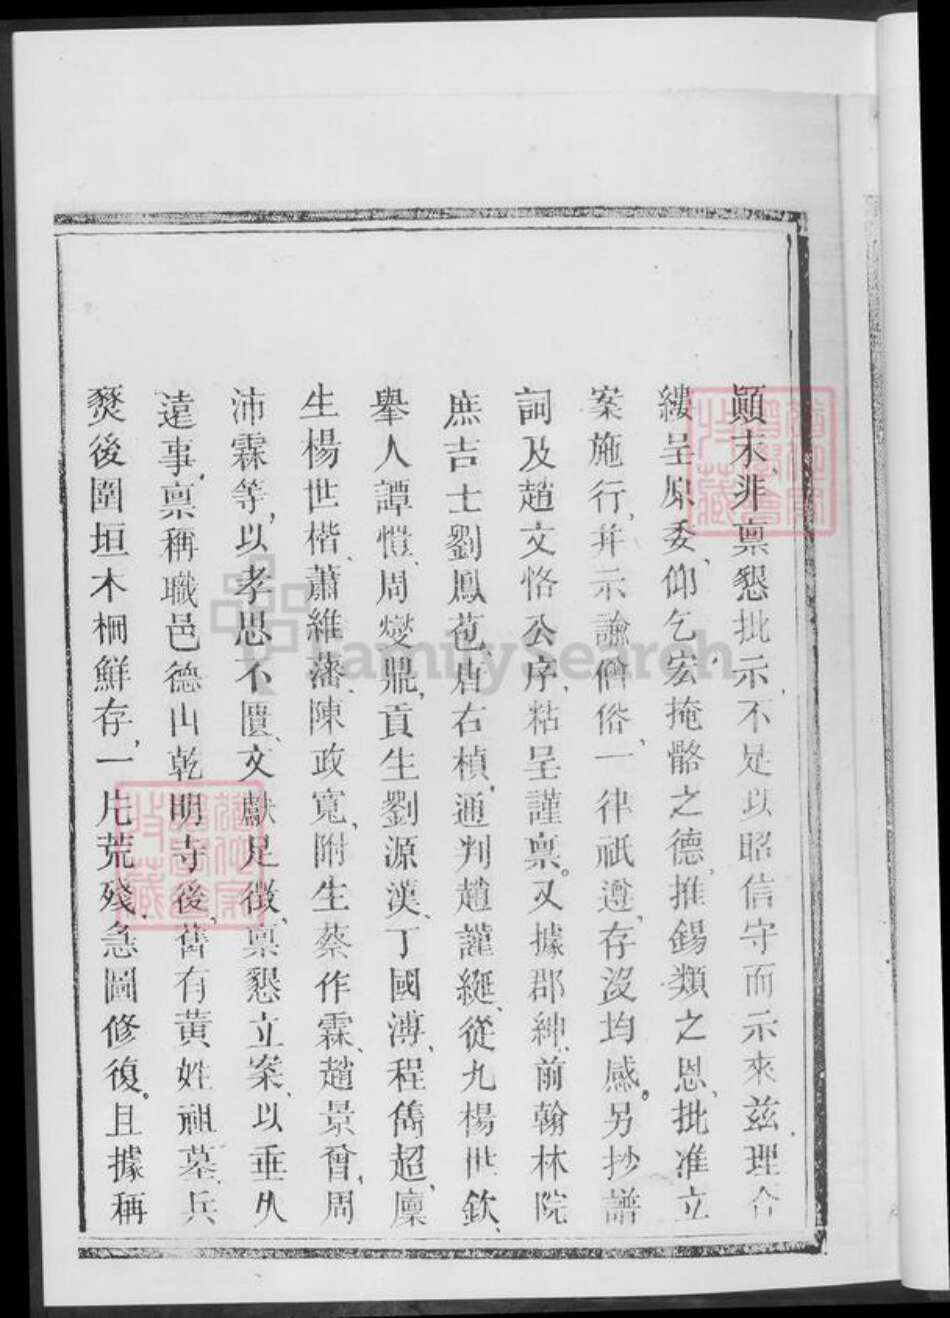 顚末、非稟懇批示、不足以昭信守而示來兹、理合
縷呈原委、仰乞宏掩骼之德、推錫類之恩、批准立
案施行、并示諭僧俗、一律祇遵、存沒均感。另抄譜
詞及趙文恪公序、粘呈謹稟。又據郡紳、前翰林院
庶吉士劉鳳苞、唐右楨、通判趙謹綖、從九楊世欽、
舉人譚愷、周燮鼎、貢生劉源漢、丁國溥、程儁超、廩
生楊世楷、蕭維藩、陳政寬、附生蔡作霖、趙景曾、周
沛霖等、以孝思不匱、文獻足徵、稟懇立案、以垂久
遠事、稟稱職邑德山乾明寺後、舊有黃姓祖墓、兵
燹後圍垣木柵鮮存、一片荒殘、急圖修復。且據稱
FamilySearch